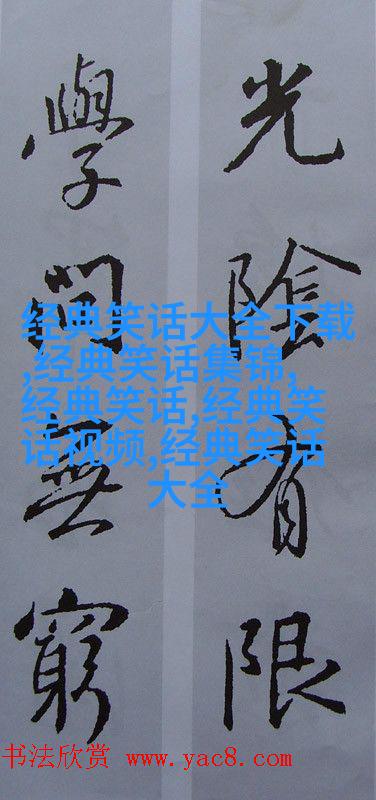 光陰有限
學問無窮
经典笑话大全下载
,经典笑话集锦,
经典笑话,经典笑
话视频,经典笑话
大全
书法欣赏 www.yac8.com